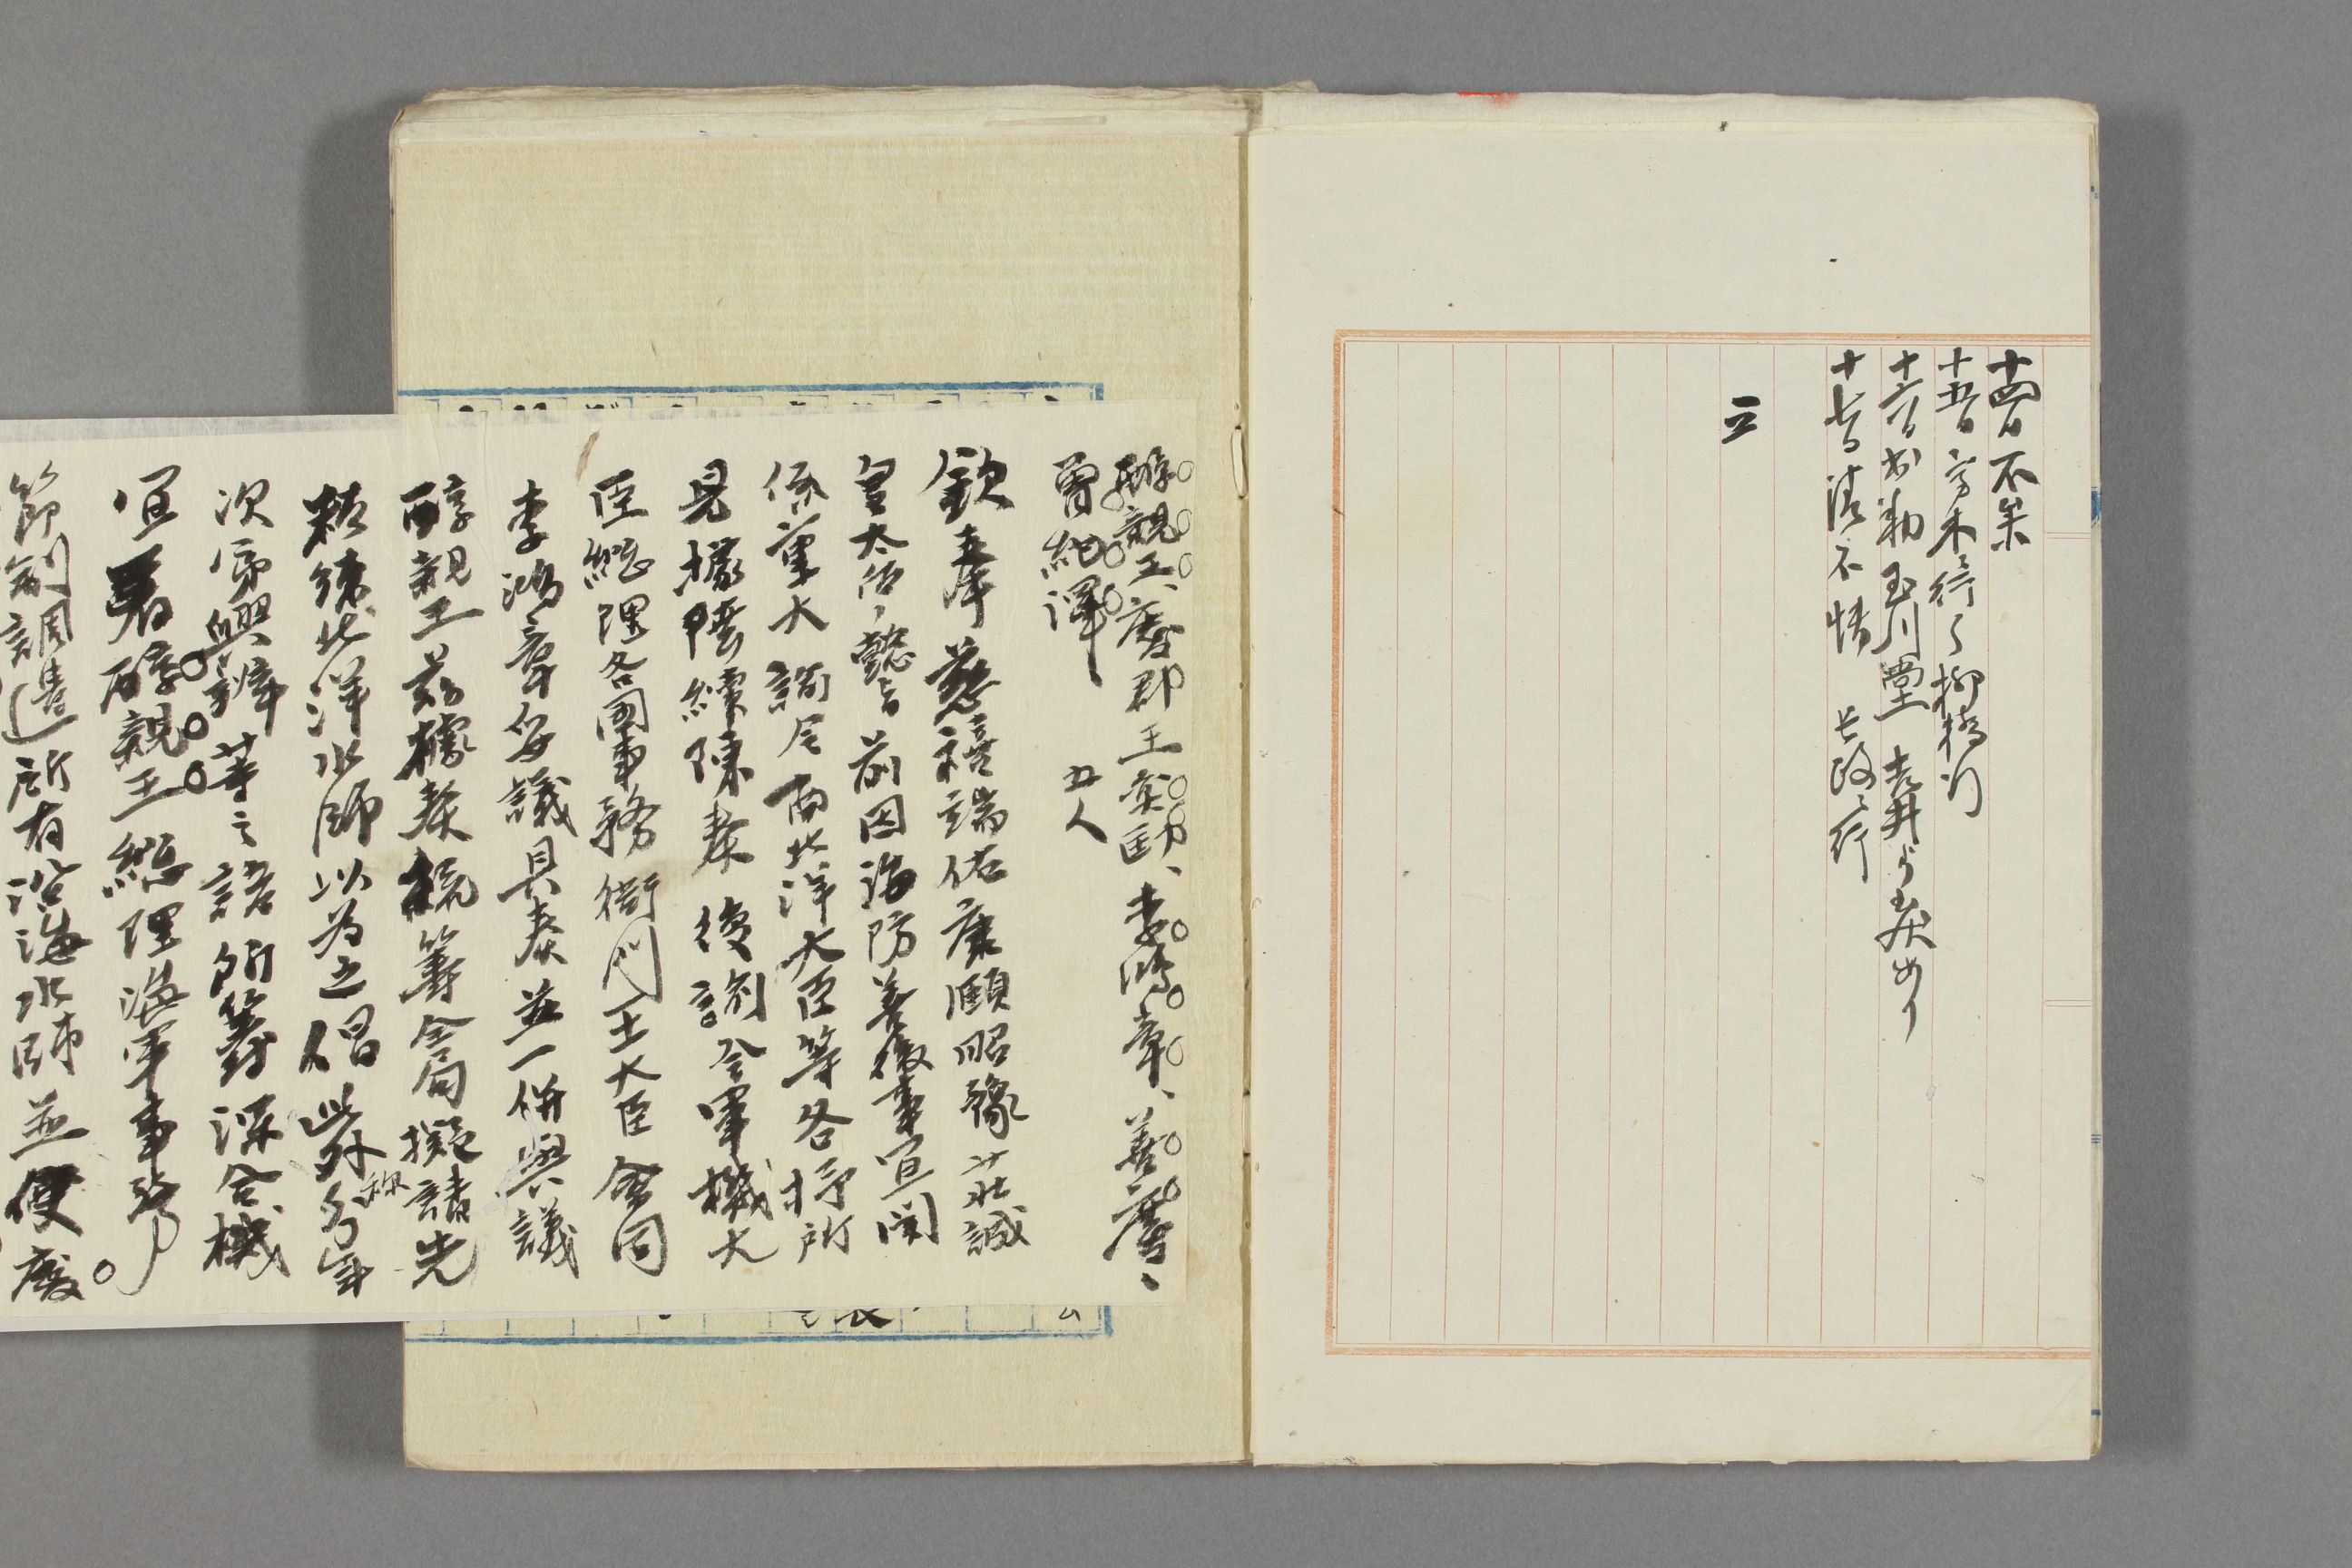 十四日不来
十五日
十六日出勤玉川堂
十七日清不情
三
醇親王、慶郡王奕劻、李鴻章、善慶、
曽紀澤 五人
欽奉慈禧端佑康頤昭豫荘誠
皇太后懿旨前因海防善後事宜関
係重大諭令南北洋大臣等各抒所
見據陸續陳奏後諭令軍機大
臣総理各國事務衙門王大臣會同
李鴻章妥議具奏並一併與議
醇親王玆據奏統籌全局擬請先
精練北洋水師以為之倡此外分年
次第興辦等之語所籌深合機
宜著醇親王総理海軍事務
節制調遣所有沿海水師並